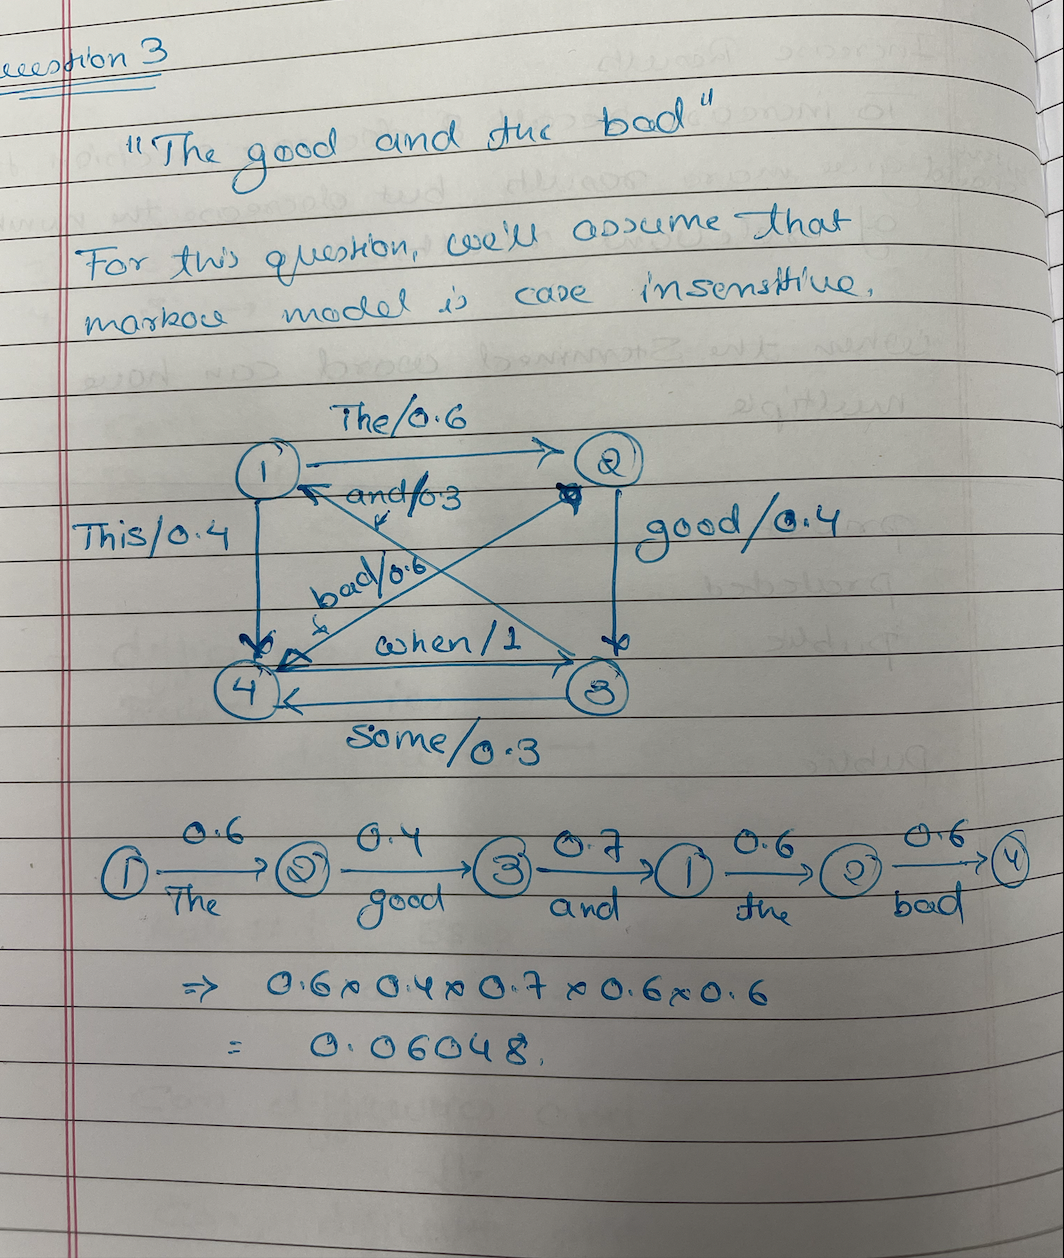 uestion 3
"The good and the bad"
For this question, we'll assume that
markov model is case insensitive.
The/0.6
1
2
and/0.3
This/0.4
good/0.4
bad/0.6
when/1
4
3
Some/0.3
0.6 0.4 0.7 0.6 0.6
1 2 3 1 2 4
The good and the bad
⇒ 0.6 × 0.4 × 0.7 × 0.6 × 0.6
= 0.06048.